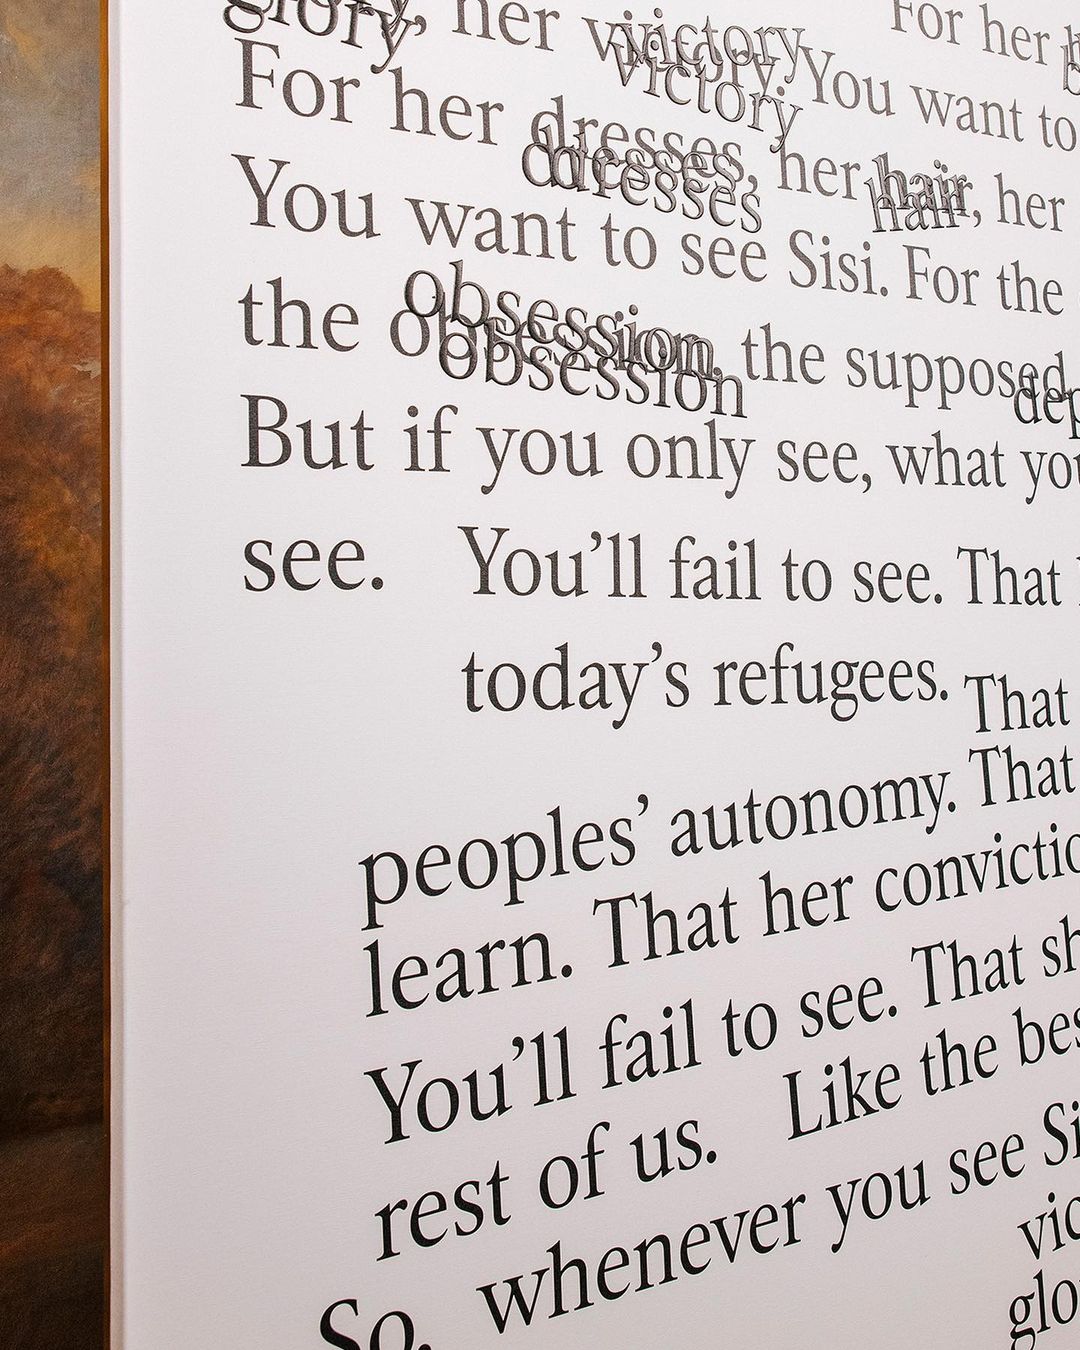 glory, her victory victory victory For her
For her dresses dresses dresses, her hair hair hair, her You want to
You want to see Sisi. For the
the obsession obsession obsession, the supposed
But if you only see, what
see. You'll fail to see. That
today's refugees. That
peoples' autonomy. That
learn. That her
You'll fail to see. That
rest of us. Like the
So, whenever you see